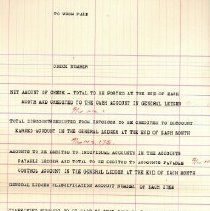 TO WHOM PAID
CHECK NUMBER
NET AMOUNT OF CHECK - TOTAL TO BE POSTED AT THE END OF EACH
MONTH AND CREDITED TO THE CASH ACCOUNT IN GENERAL LEDGER
TOTAL DISCOUNTS FROM INVOICES TO BE CREDITED TO DISCOUNT
EARNED ACCOUNT IN THE GENERAL LEDGER AT THE END OF EACH MONTH
AMOUNTS TO BE CREDITED TO INDIVIDUAL ACCOUNTS IN THE ACCOUNTS
PAYABLE LEDGER AND TOTAL TO BE CREDITED TO ACCOUNTS PAYABLE
CONTROL ACCOUNT IN THE GENERAL LEDGER AT THE END OF EACH MONTH
GENERAL LEDGER CLASSIFICATION ACCOUNT NUMBER OF EACH ITEM